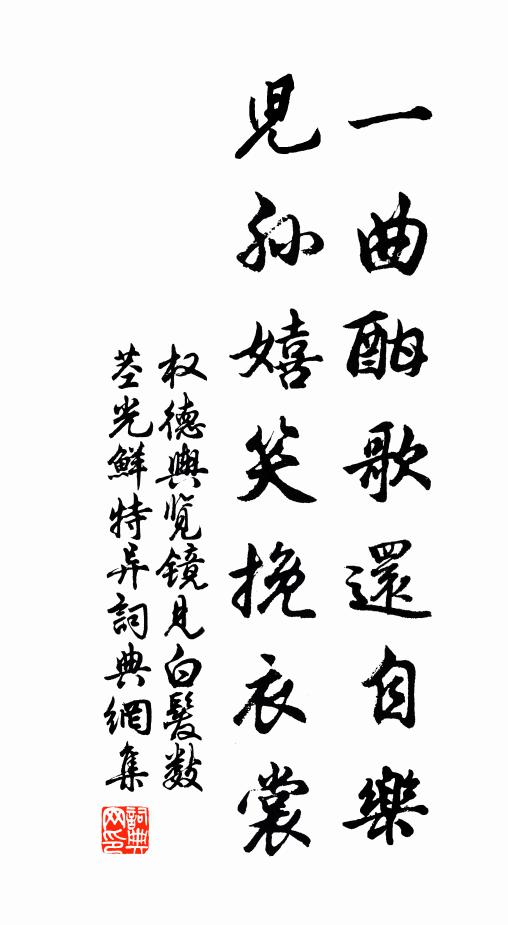 一曲酣歌還自樂
兒孫嬉笑挽衣裳
权德輿览镜見白髮数
茎光鮮特异詞典網集
詞典
网印